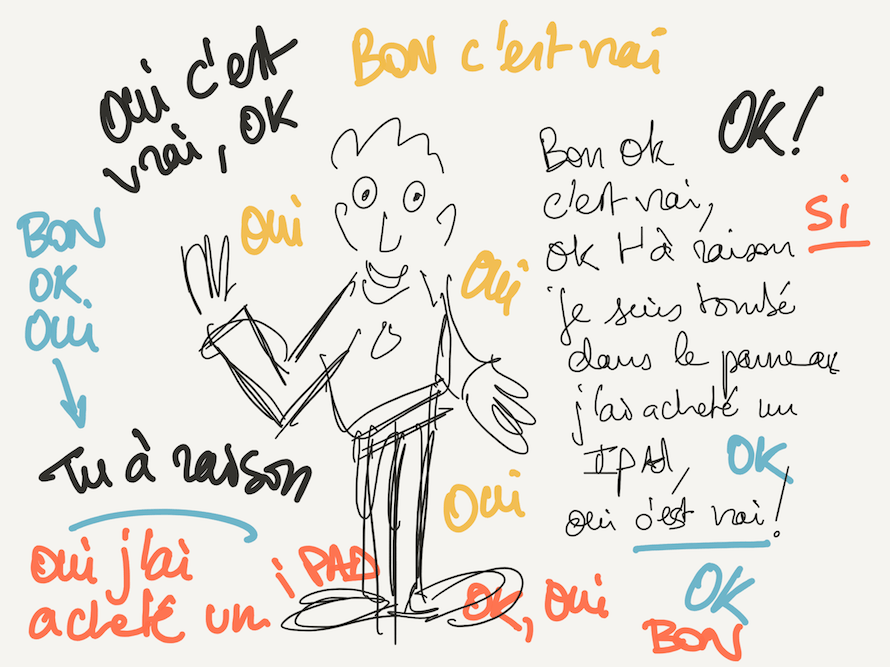 BON c'est vrai
Oui c'est
vrai, OK
OK!
Bon ok
c'est vrai,
OK t'à raison
je suis tombé
dans le panneau
j'ai acheté un
IPAd,
oui c'est vrai!
si
BON
OK
OUI
Oui
Oui
Tu à raison
OK
Oui
Oui j'ai
acheté un iPAD
OK, Oui
OK
BON